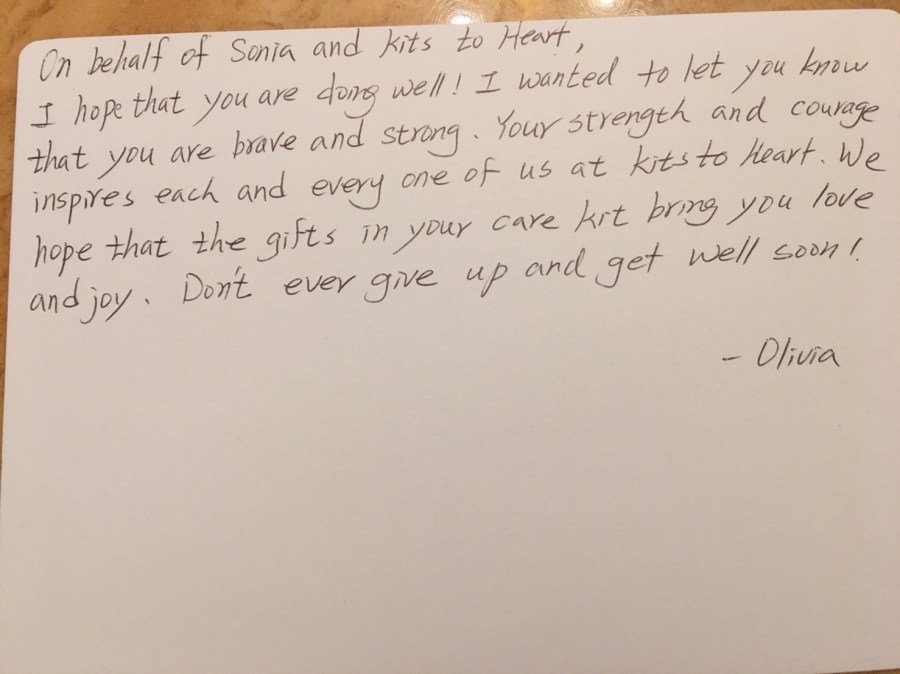 On behalf of Sonia and kits to Heart,
I hope that you are doing well! I wanted to let you know
that you are brave and strong. Your strength and courage
inspires each and every one of us at kits to Heart. We
hope that the gifts in your care kit bring you love
and joy. Don't ever give up and get well soon!
- Olivia